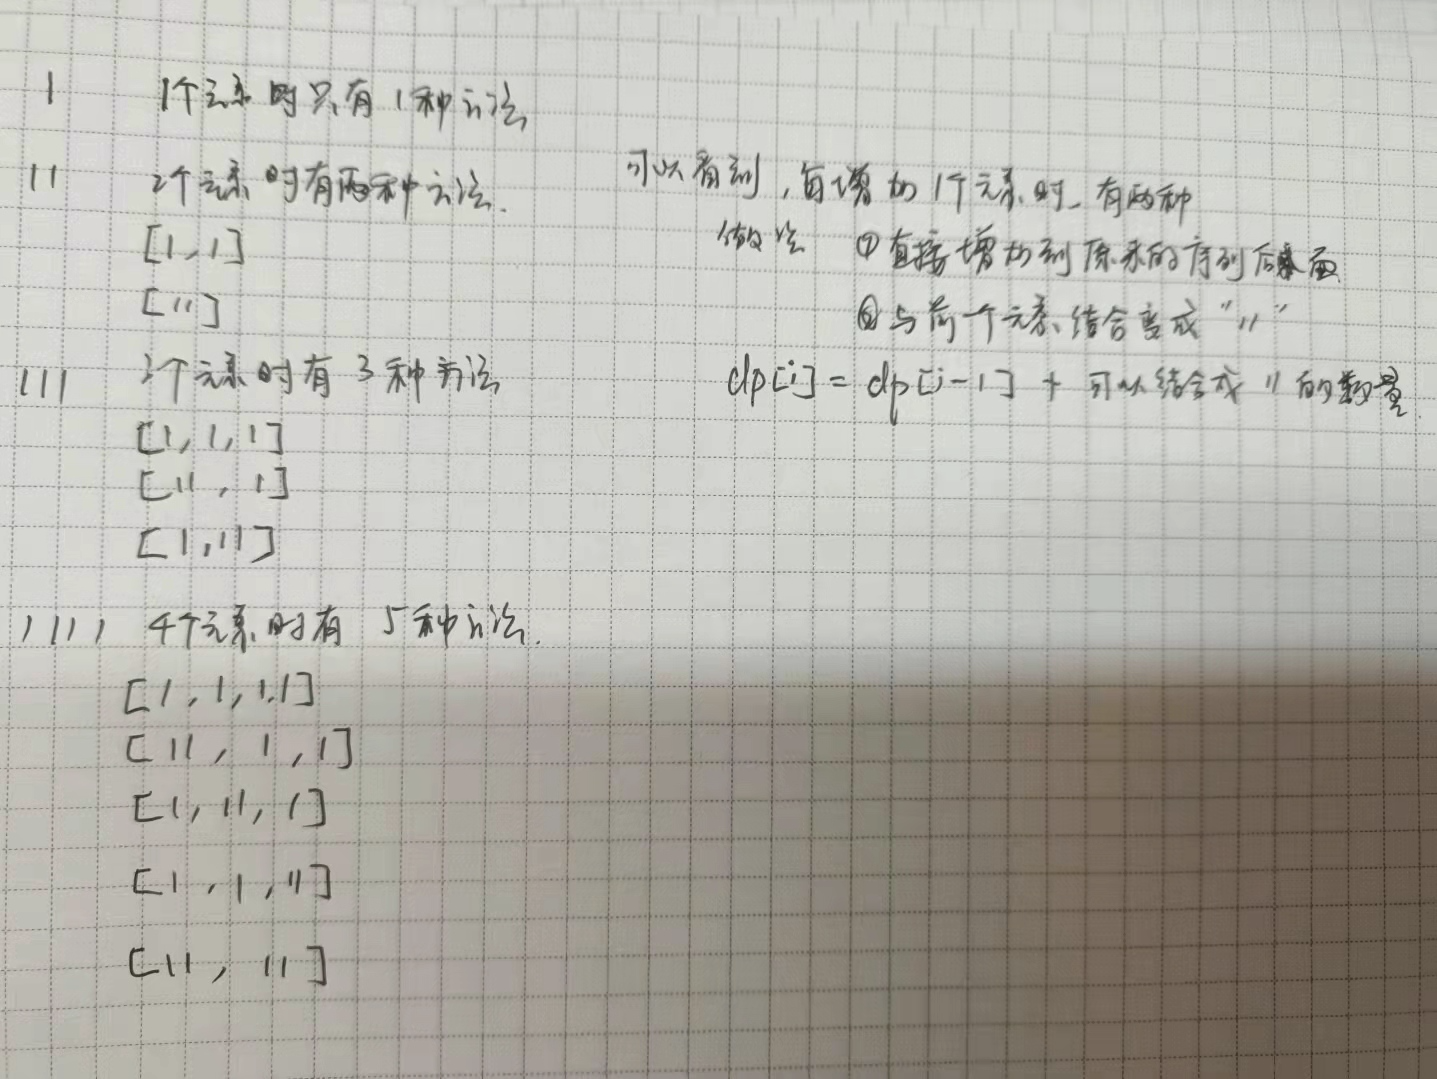 1 1个元素时只有1种方法
11 2个元素时有两种方法.
[1,1]
[11]
111 3个元素时有3种方法
[1,1,1]
[11,1]
[1,11]
1111 4个元素时有5种方法.
[1,1,1,1]
[11,1,1]
[1,11,1]
[1,1,11]
[11,11]
可以看到,每增加1个元素时,有两种
做法 ①直接增加到原来的序列后面
②与前一个元素结合变成"11"
dp[i] = dp[i-1] + 可以结合成11的数量.